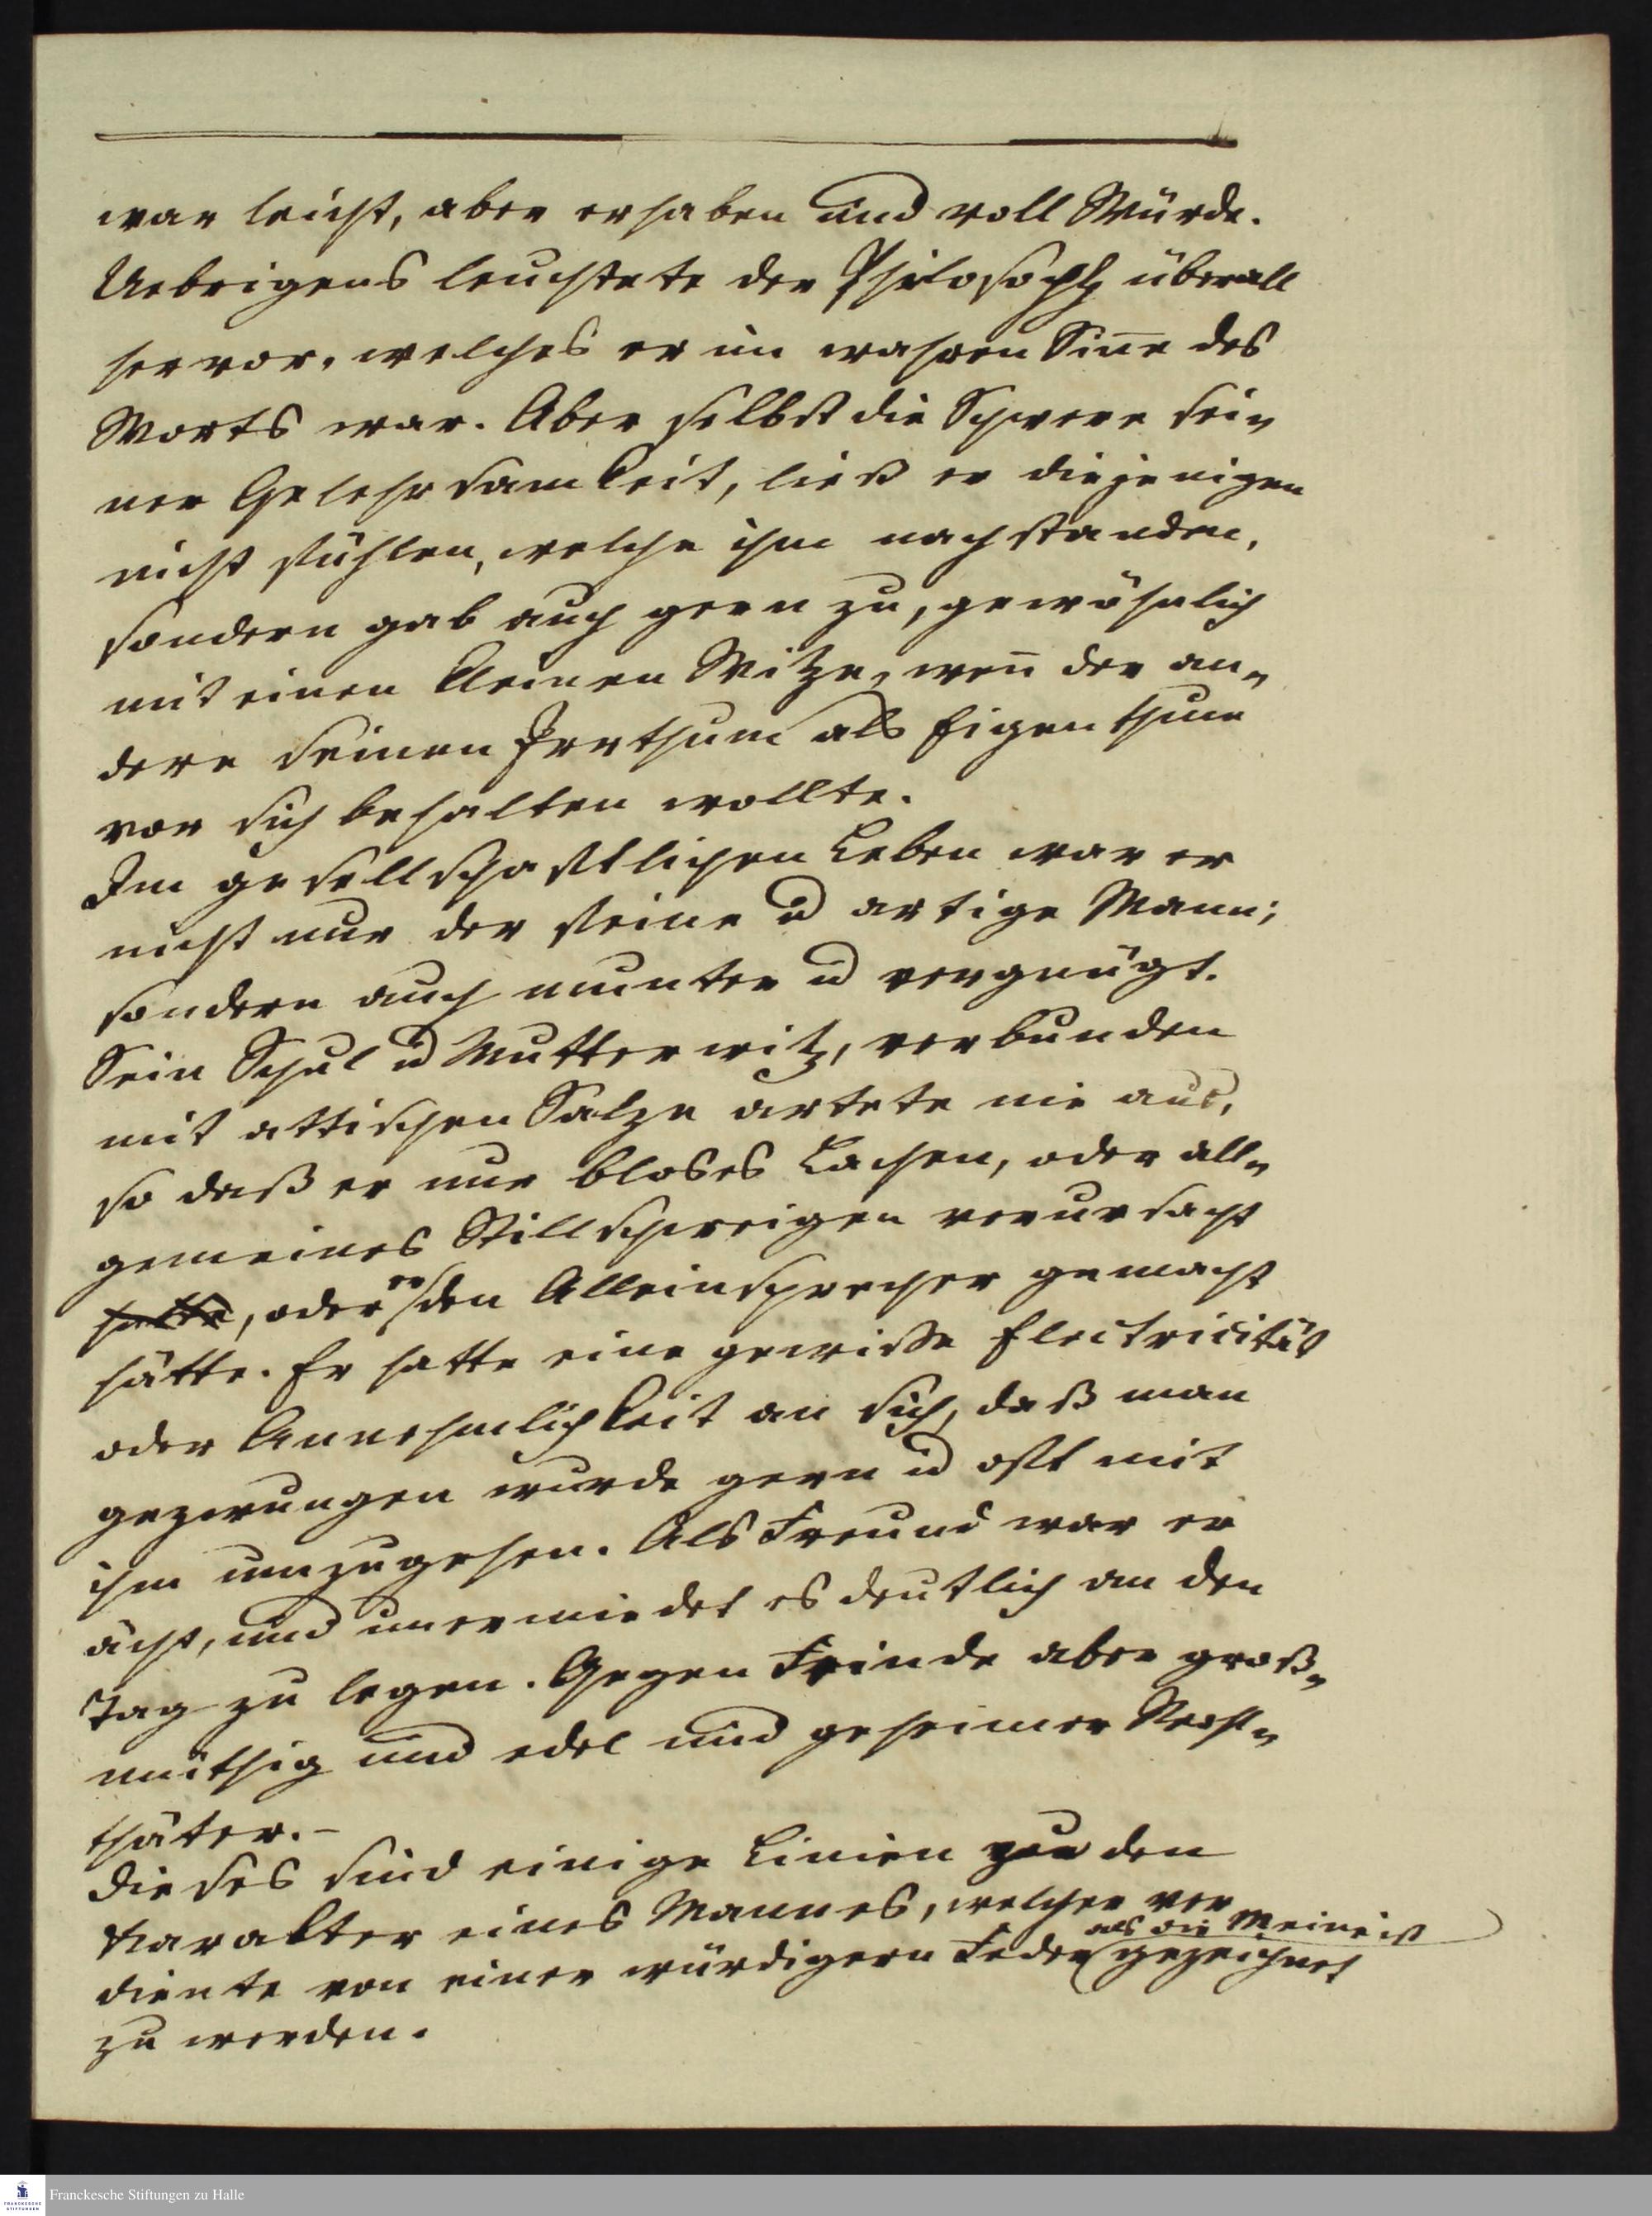 war leicht, aber erhaben und voll Würde.
Uebrigens leuchtete der Philosoph überall
hervor, welches er im wahren Siñe des
Worts war. Aber selbst die Schwere sei„
ner Gelehrsamkeit, ließ er diejenigen
nicht fühlen, welche ihm nachstanden,
sondern gab auch gern zu, gewöhnlich
mit einen kleinen Witze, weñ der an„
dere seinen Irrthum als Eigenthum
vor sich behalten wollte.
Im gesellschaftlichen Leben war er
nicht nur der feine u artige Mann;
sondern auch munter u vergnügt.
Sein Schul u Mutterwitz, verbunden
mit attischen Salze artete nie aus,
so daß er nur bloses Lachen, oder all„
gemeines Stillschweigen verursacht
hätte, oder er den Alleinsprecher gemacht
hätte. Er hatte eine gewisse Electricität
oder Annehmlichkeit an sich, daß man
gezwungen wurde gern u oft mit
ihm umzugehen. Als Freund war er
ächt, und unermüdet es deutlich an den
Tag zu legen. Gegen Feinde aber groß„
müthig und edel und geheimer
thäter.–
Dieses sind einige Linien zu den
Karakter eines Mannes, welcher ver
diente von einer würdigern Feder als die Meine ist gezeichnet
zu werden.
Franckesche Stiftungen zu Halle